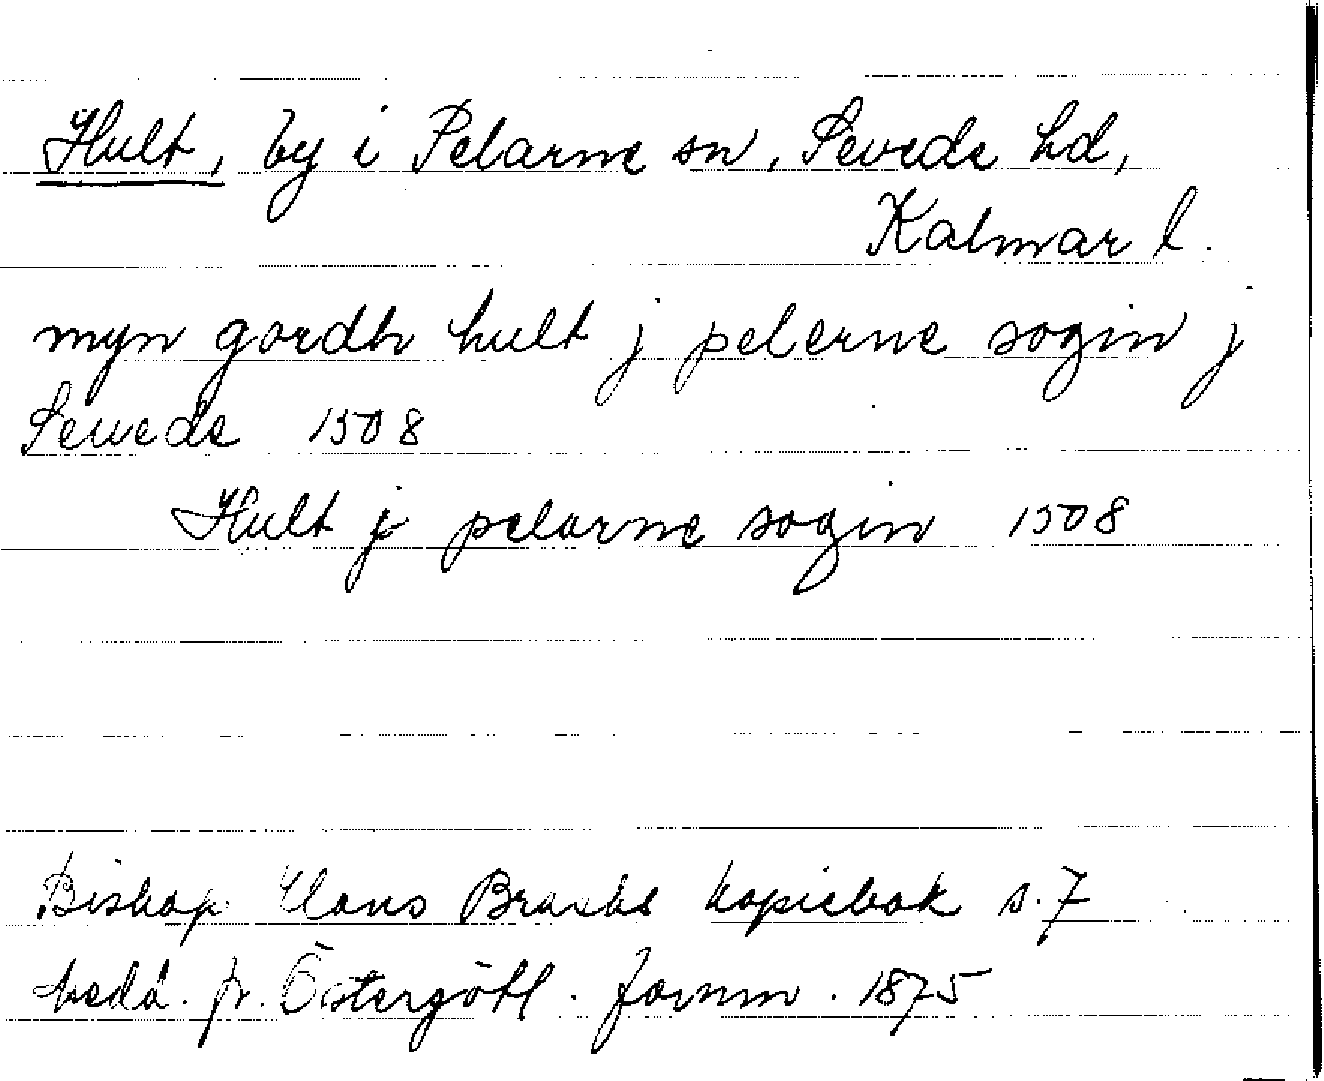 Hult, by i Pelarne sn, Sevede hd,
Kalmar l.
myn gordh hult j pelerne sogin j
Sewede 1508
Hult j pelarne sogin 1508
Biskop Hans Brasks kopiebok s. 7
Medd. fr. Östergötl. fornm. 1875